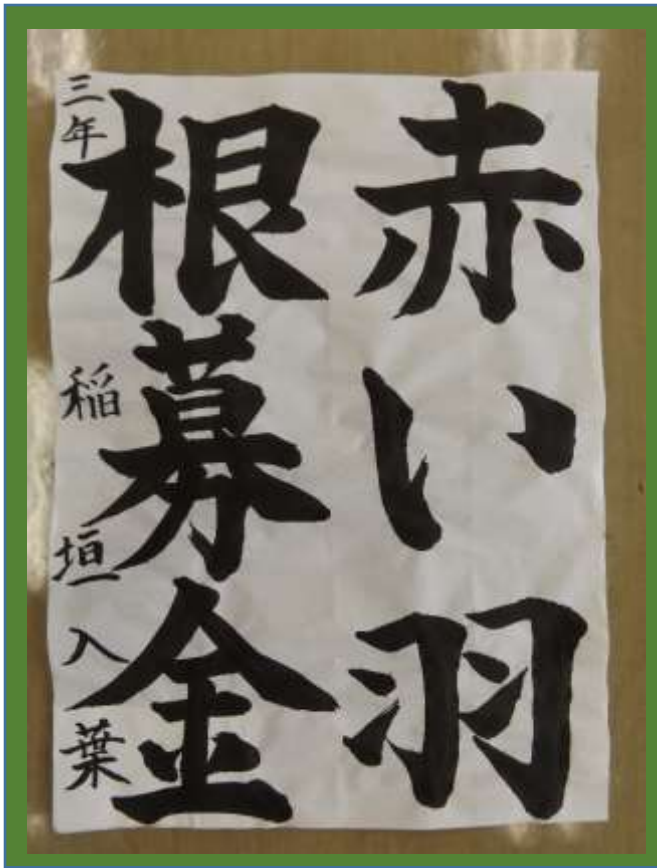 赤い羽
根募金
三年 稲垣入葉